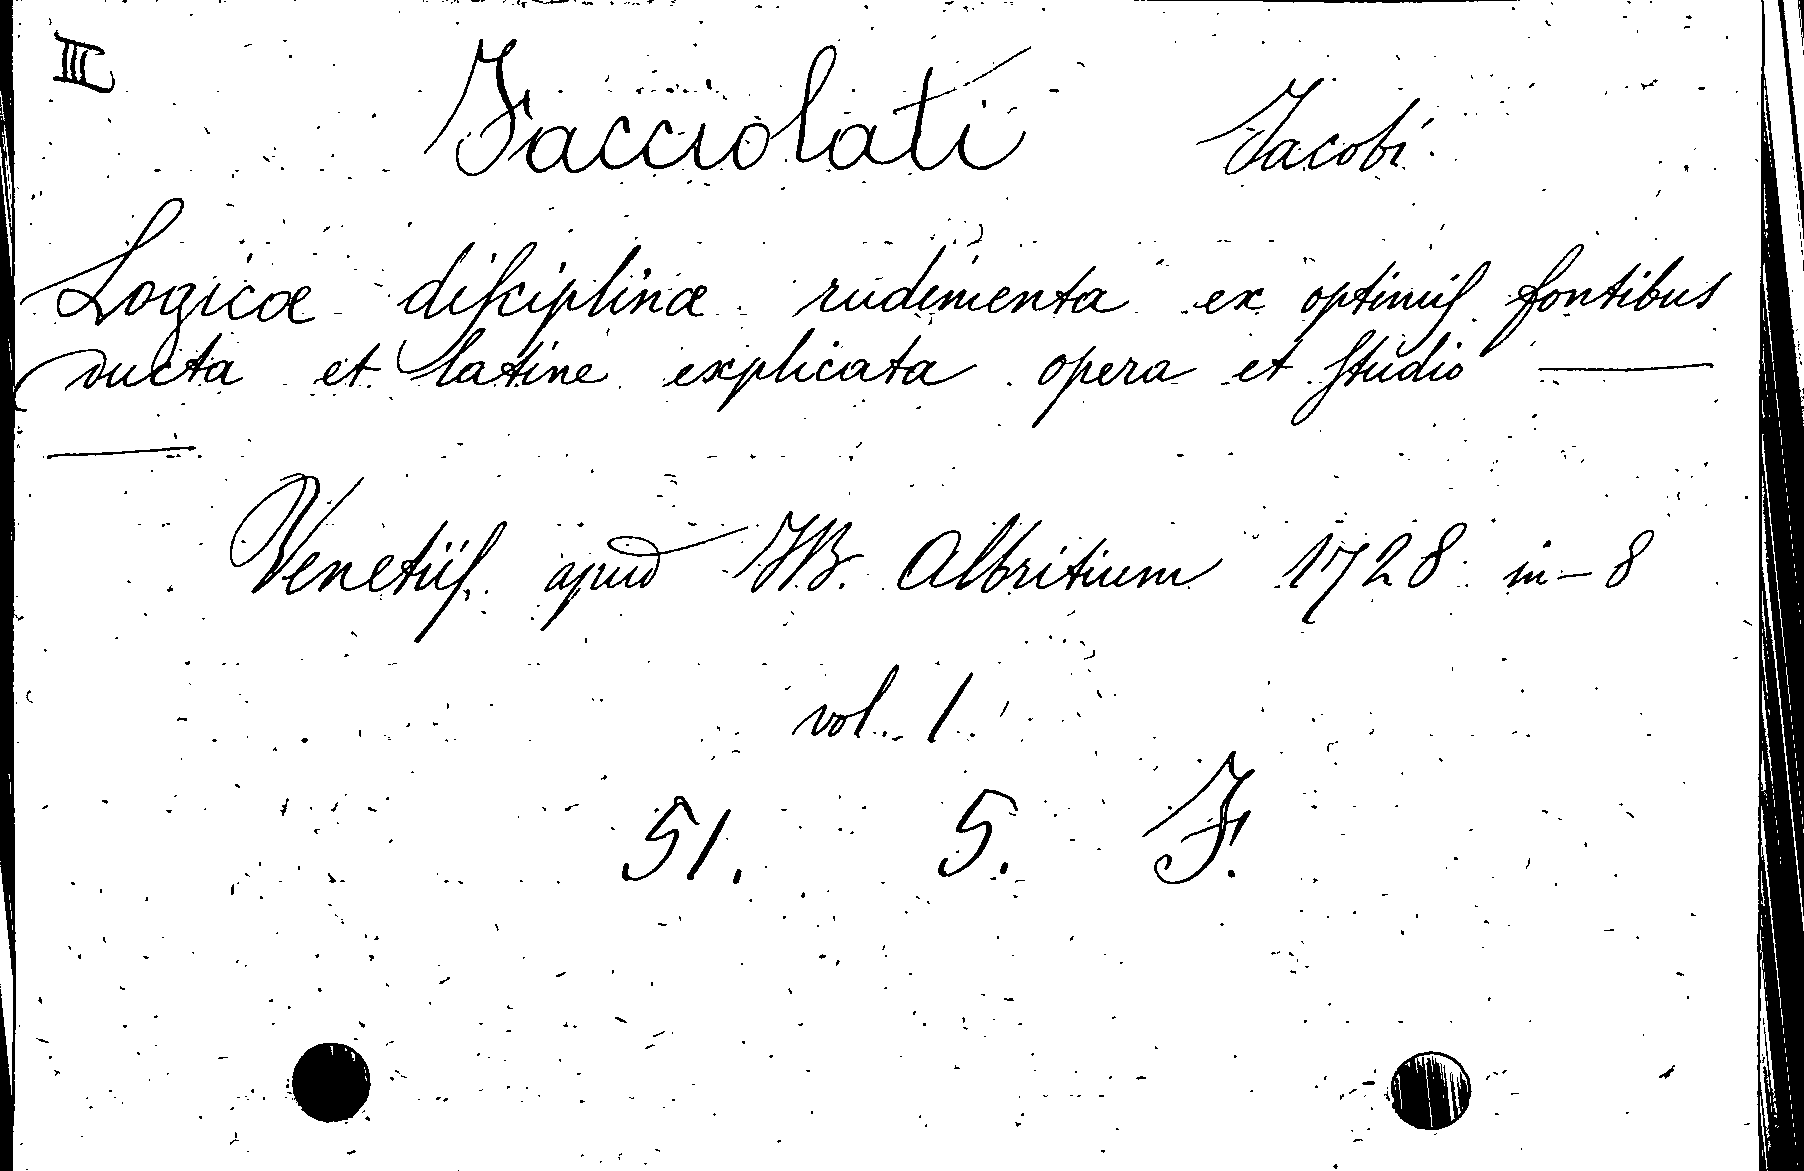 III
Facciolati Jacobi
Logicæ diſciplinæ rudimenta ex optimiſ fontibus
ducta et latine explicata opera et ſtudio —
—
Venetiiſ apud JB. Albritium 1728 in-8
vol. 1.
51. 5. F.